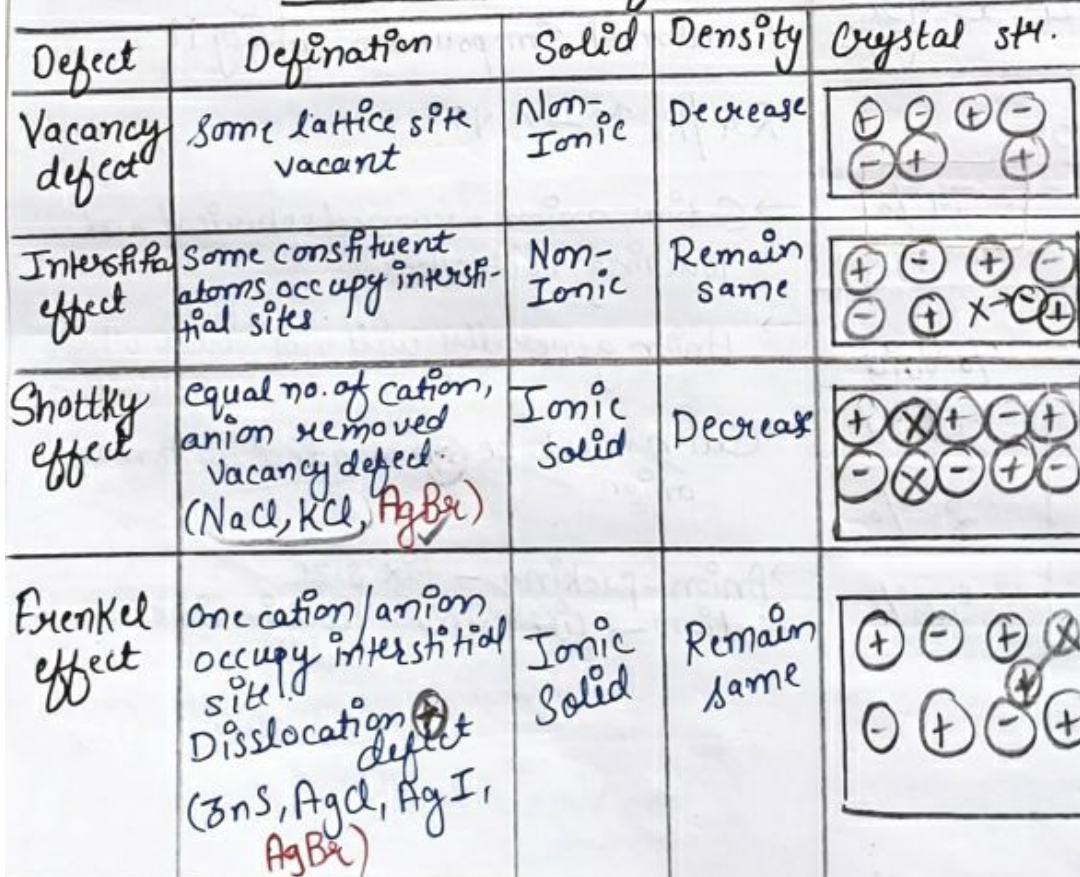 Defect Defination Solid Density Crystal str.
Vacancy defect
Some lattice site vacant
Non-Ionic
Decrease
+ - + -
- + +
Interstitial effect
Some constituent
atoms occupy intersti-
tial sites.
Non-
Ionic
Remain
same
+ - + -
- + x→ - +
Shottky
effect
equal no. of cation,
anion removed
Vacancy defect.
(NaCl, KCl, AgBr)
Ionic
solid
Decrease
+ X + - +
- X - + -
Frenkel
effect
One cation/anion
occupy interstitial
site.
Disslocation +
defect
(ZnS, AgCl, AgI,
AgBr)
Ionic
Solid
Remain
same
+ - + X
+
- + - +